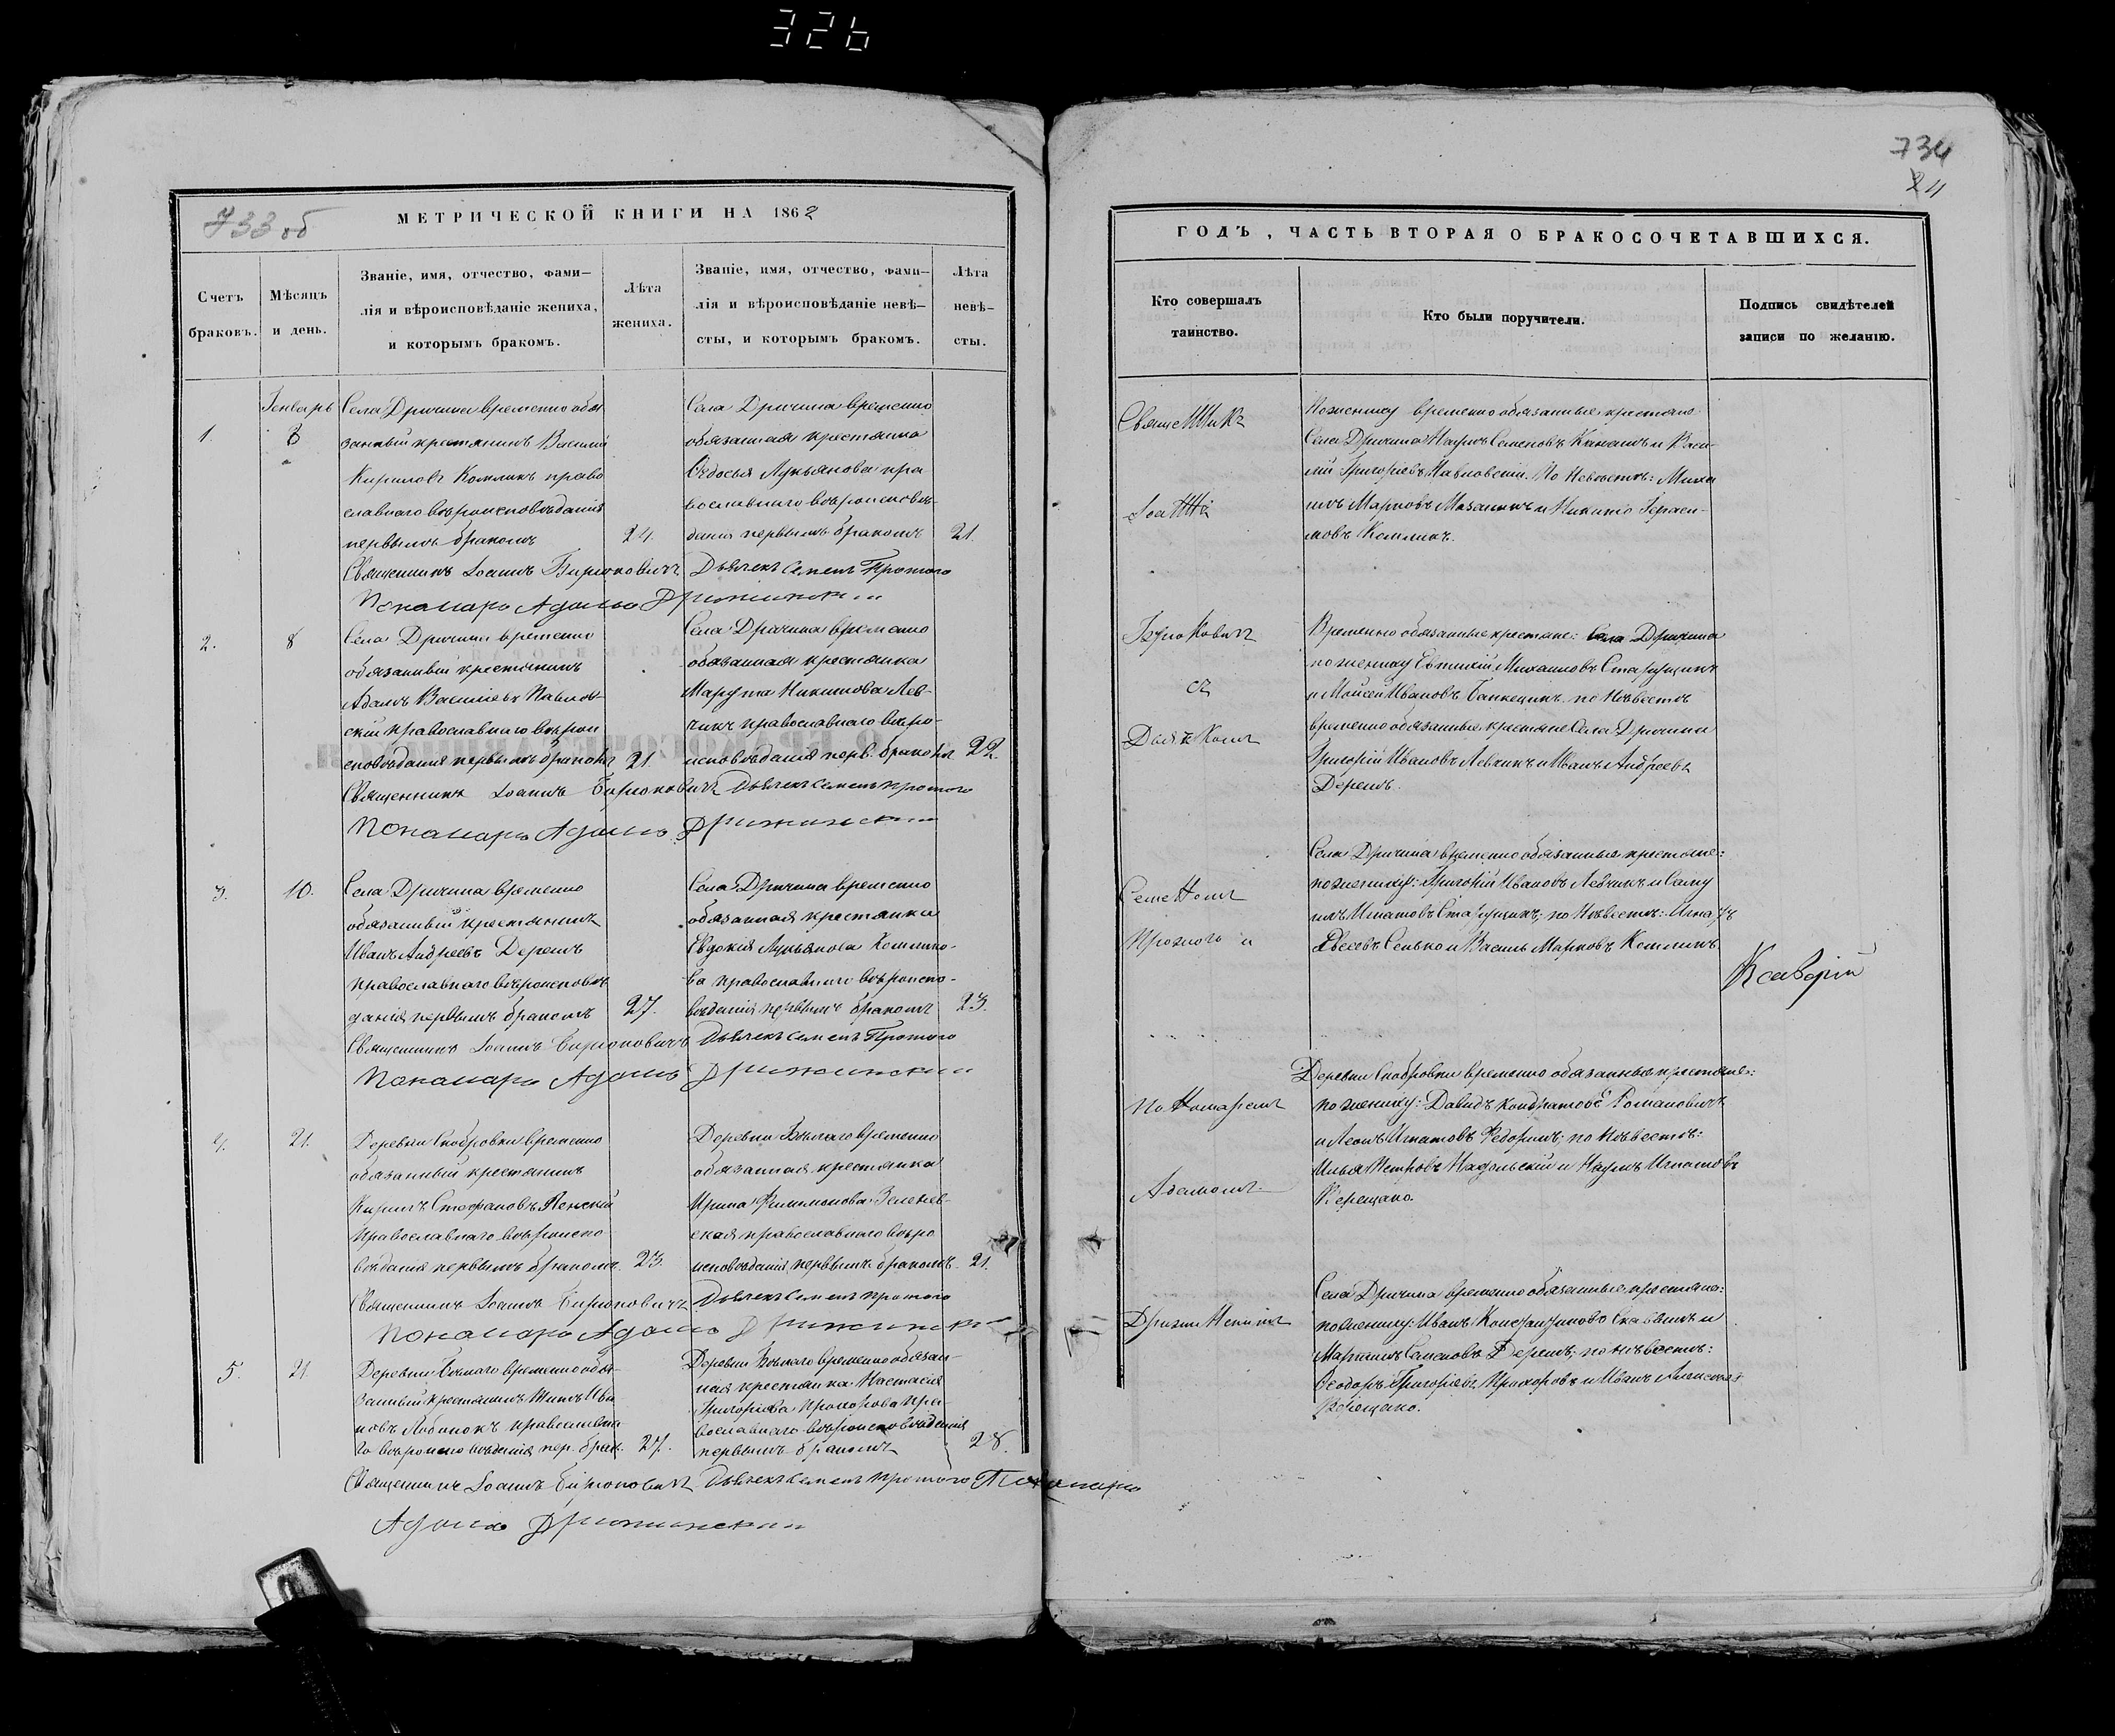 326
733 об
МЕТРИЧЕСКОЙ КНИГИ НА 1862
Счетъ браковъ.
Мѣсяцъ и день.
Званіе, имя, отчество, фами-
лія и вѣроисповѣданіе жениха,
и которымъ бракомъ.
Лѣта
жениха.
Званіе, имя, отчество, фами-
лія и вѣроисповѣданіе невѣ-
сты, и которымъ бракомъ.
Лѣта
невѣ-
сты.
Генварь
1.
Села Дричина временно обя
занный крестянинъ Василій
Кириловъ Комликъ право
славнаго вѣроисповѣданія
первымъ бракомъ
24.
Села Дричина временно
обязанная крестянка
Ѳедосья Лукьянова пра
вославнаго вѣроисповѣ-
данія первымъ бракомъ
21.
Священникъ Іоаннъ Бирюковичъ Дьячекъ Семенъ
Пономарь Адамъ
2.
8
Села Дричина временно
обязанный крестянинъ
Адамъ Василіевъ Павлов
скій православнаго вѣрои
сповѣданія первымъ бракомъ
21
Села Дричина временно
обязанная крестянка
Марута Никитова Лев-
чикъ православнаго вѣро-
исповѣданія перв. бракомъ
22.
Священникъ Іоаннъ Бирюковичъ Дьячекъ Семенъ
Пономарь Адамъ
3.
10.
Села Дричина временно
обязанный крестянинъ
Иванъ Андреевъ Деремъ
православнаго вѣроисповѣ
данія первымъ бракомъ
27.
Села Дричина временно
обязанная крестянка
Евдокія Лукьянова Комлико-
ва православнаго вѣроиспо-
вѣданія первымъ бракомъ
23.
Священникъ Іоаннъ Бирюковичъ Дьячекъ Семенъ
Пономарь Адамъ
4.
21.
Деревни Скобровки временно
обязанный крестянинъ
Кирилъ Стефановъ
православнаго вѣроиспо
вѣданія первымъ бракомъ
23.
Деревни временно
обязанная крестянка
Ирина Филимонова Зеленев-
ская православнаго вѣро
исповѣданія первымъ бракомъ
21.
Священникъ Іоаннъ Бирюковичъ Дьячекъ Семенъ
Пономарь Адамъ
5.
21
Деревни временно обя-
занный крестянинъ Ива
новъ православна
го вѣроисповѣданія пер. брак.
27.
Деревни временно обязан-
ная крестянка Настасія
Григоріева Прохорова пра
вославнаго вѣроисповѣданія
первымъ бракомъ
28.
Священникъ Іоаннъ Бирюковичъ Дьячекъ Семенъ Пономарь
Адамъ
734
211
ГОДЪ, ЧАСТЬ ВТОРАЯ О БРАКОСОЧЕТАВШИХСЯ.
Кто совершалъ
таинство.
Кто были поручители.
Подпись свидѣтелей
записи по желанію.
По жениху временно обязанные крестяне
Села Дричина Наумъ Семеновъ и Васи-
лій Григоріевъ Павловскій. По Невѣстѣ: Миха
илъ Марковъ Мазаникъ и Никита Гераси-
мовъ Комликъ.
Временно обязанные крестяне: Села Дричина
по жениху Евтихій Михаиловъ
и Моисей Ивановъ по Невѣстѣ
временно обязанные крестяне Села Дричина
Григорій Ивановъ Левчикъ и Иванъ Андреевъ
Деремъ.
Села Дричина временно обязанные крестяне:
по жениху: Григорій Ивановъ Левчикъ и Саму
илъ Игнатовъ по Невѣстѣ: Игнатъ
Сенько и Василь Марковъ Комликъ
Деревни Скобровки временно обязанные крестяне:
по жениху: Давидъ Кондратовъ Романовичъ
и Леонъ Игнатовъ по Невѣстѣ:
Илья Петровъ и Наумъ Игнатовъ
Верещако.
Села Дричина временно обязанные крестяне:
по жениху: Иванъ Константиновъ и
Мартинъ Семеновъ Деремъ; по невѣстѣ:
Ѳеодоръ Григоріевъ Прохоровъ и Иванъ
Верещако.
Священникъ
Іоаннъ
Бирюковичъ
съ
Дьячкомъ
Семеномъ
и
Пономаремъ
Адамомъ